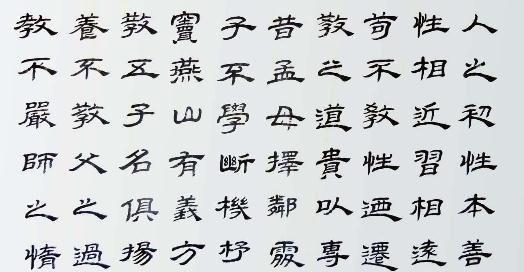 人之初性本善
性相近習相遠
苟不教性迺遷
教之道貴以專
昔孟母擇鄰處
子不學斷機杼
竇燕山有義方
教五子名俱揚
養不教父之過
教不嚴師之惰